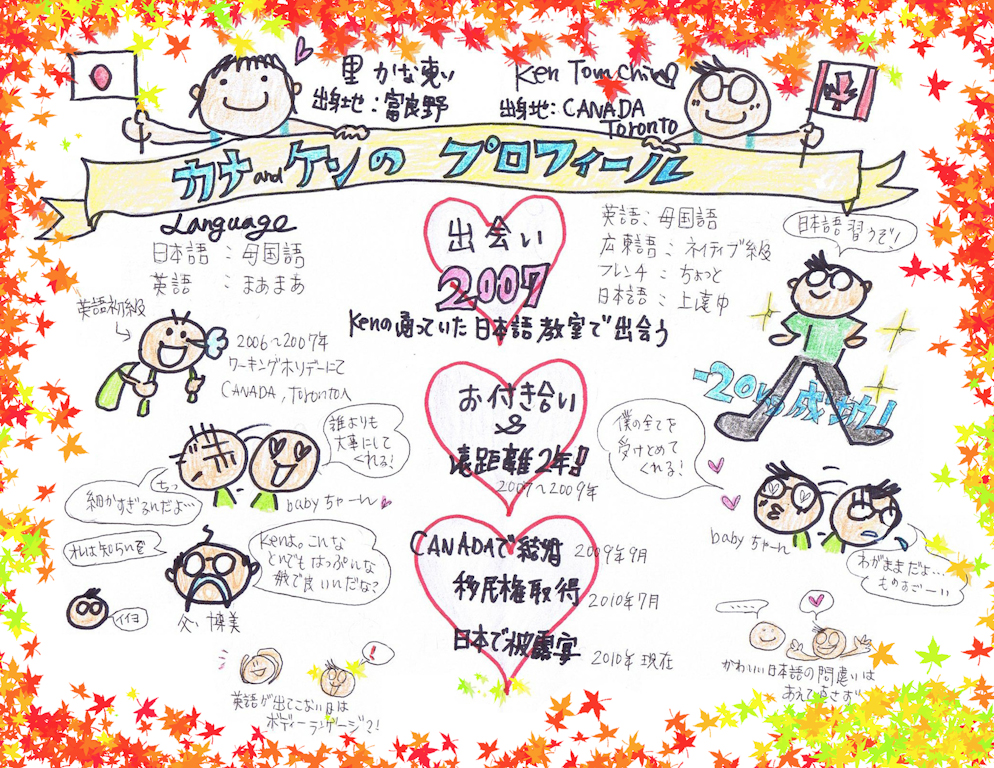 里 かな恵
出身地：富良野
Ken Tomchin
出身地：CANADA
Toronto
カナ and ケンの プロフィール
Language
日本語：母国語
英語：まぁまあ
英語初級
2006～2007年
ワーキングホリデーにて
CANADA, Torontoへ
出会い
2007
Kenの通っていた日本語教室で出会う
英語：母国語
広東語：ネイティブ級
フレンチ：ちょっと
日本語：上達中
日本語習うぞ!
-20kg 成功!
お付き合い
&
遠距離2年!!
2007～2009年
誰よりも
大事にして
くれる!
ちっ
細かすぎるんだよ…
babyちゃーん
僕の全てを
受けとめて
くれる!
babyちゃーん
わがままだよ…
ものすごーい
CANADAで結婚 2009年9月
移民権取得 2010年7月
日本で披露宴 2010年 現在
オレは知らいぞ
Kenは。こんな
とんでもはっぷんな
娘で良いんだな?
イイヨ
父 博美
!
英語が出てこない日は
ボディーランゲージ?!
……
かわいい日本語の間違いは
あえて直さず